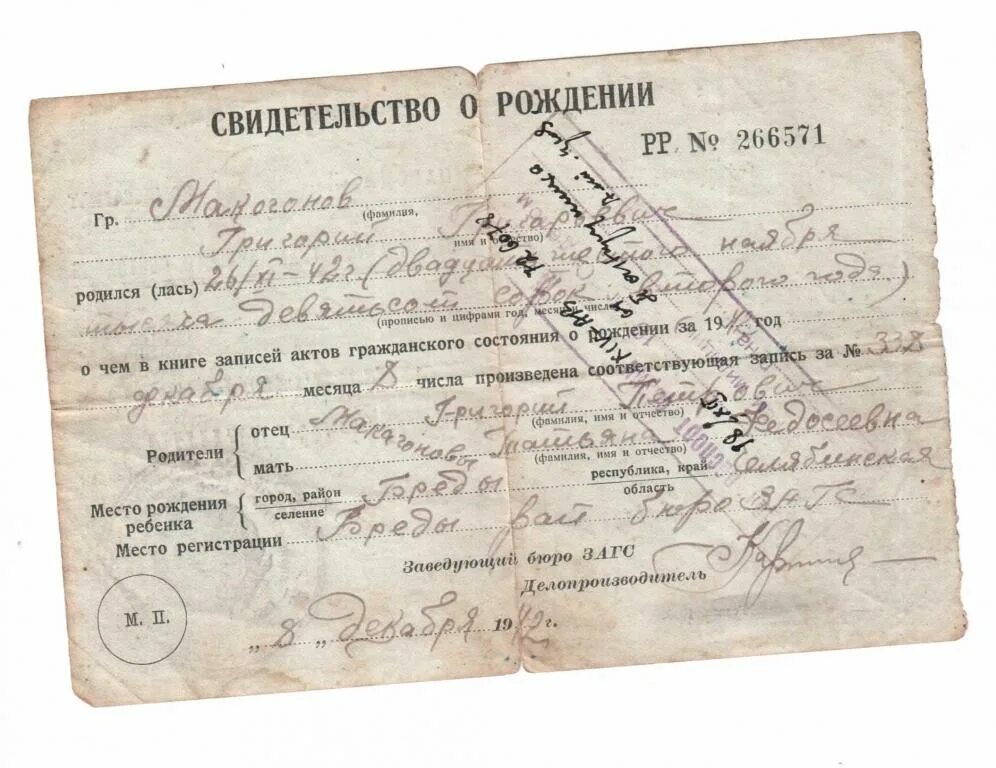 СВИДЕТЕЛЬСТВО О РОЖДЕНИИ
РР № 266571
Гр. Макогонов
(фамилия,
Григорий Григорьевич
имя и отчество)
родился (лась) 26/XI-42г (двадцать шестого ноября
тысяча девятьсот сорок второго года)
(прописью и цифрами год, месяц и число)
о чем в книге записей актов гражданского состояния о рождении за 1942 год
декабря месяца 8 числа произведена соответствующая запись за № 338
Родители
отец Григорий Петрович
(фамилия, имя и отчество)
Макагоновы
мать Татьяна Федосеевна
(фамилия, имя и отчество)
Место рождения ребенка
город, район Бреды
селение
республика, край Челябинская
область
Место регистрации Бреды рай бюро ЗАГС
Заведующий бюро ЗАГС
Делопроизводитель
М. П.
„ 8 „ декабря 1942 г.